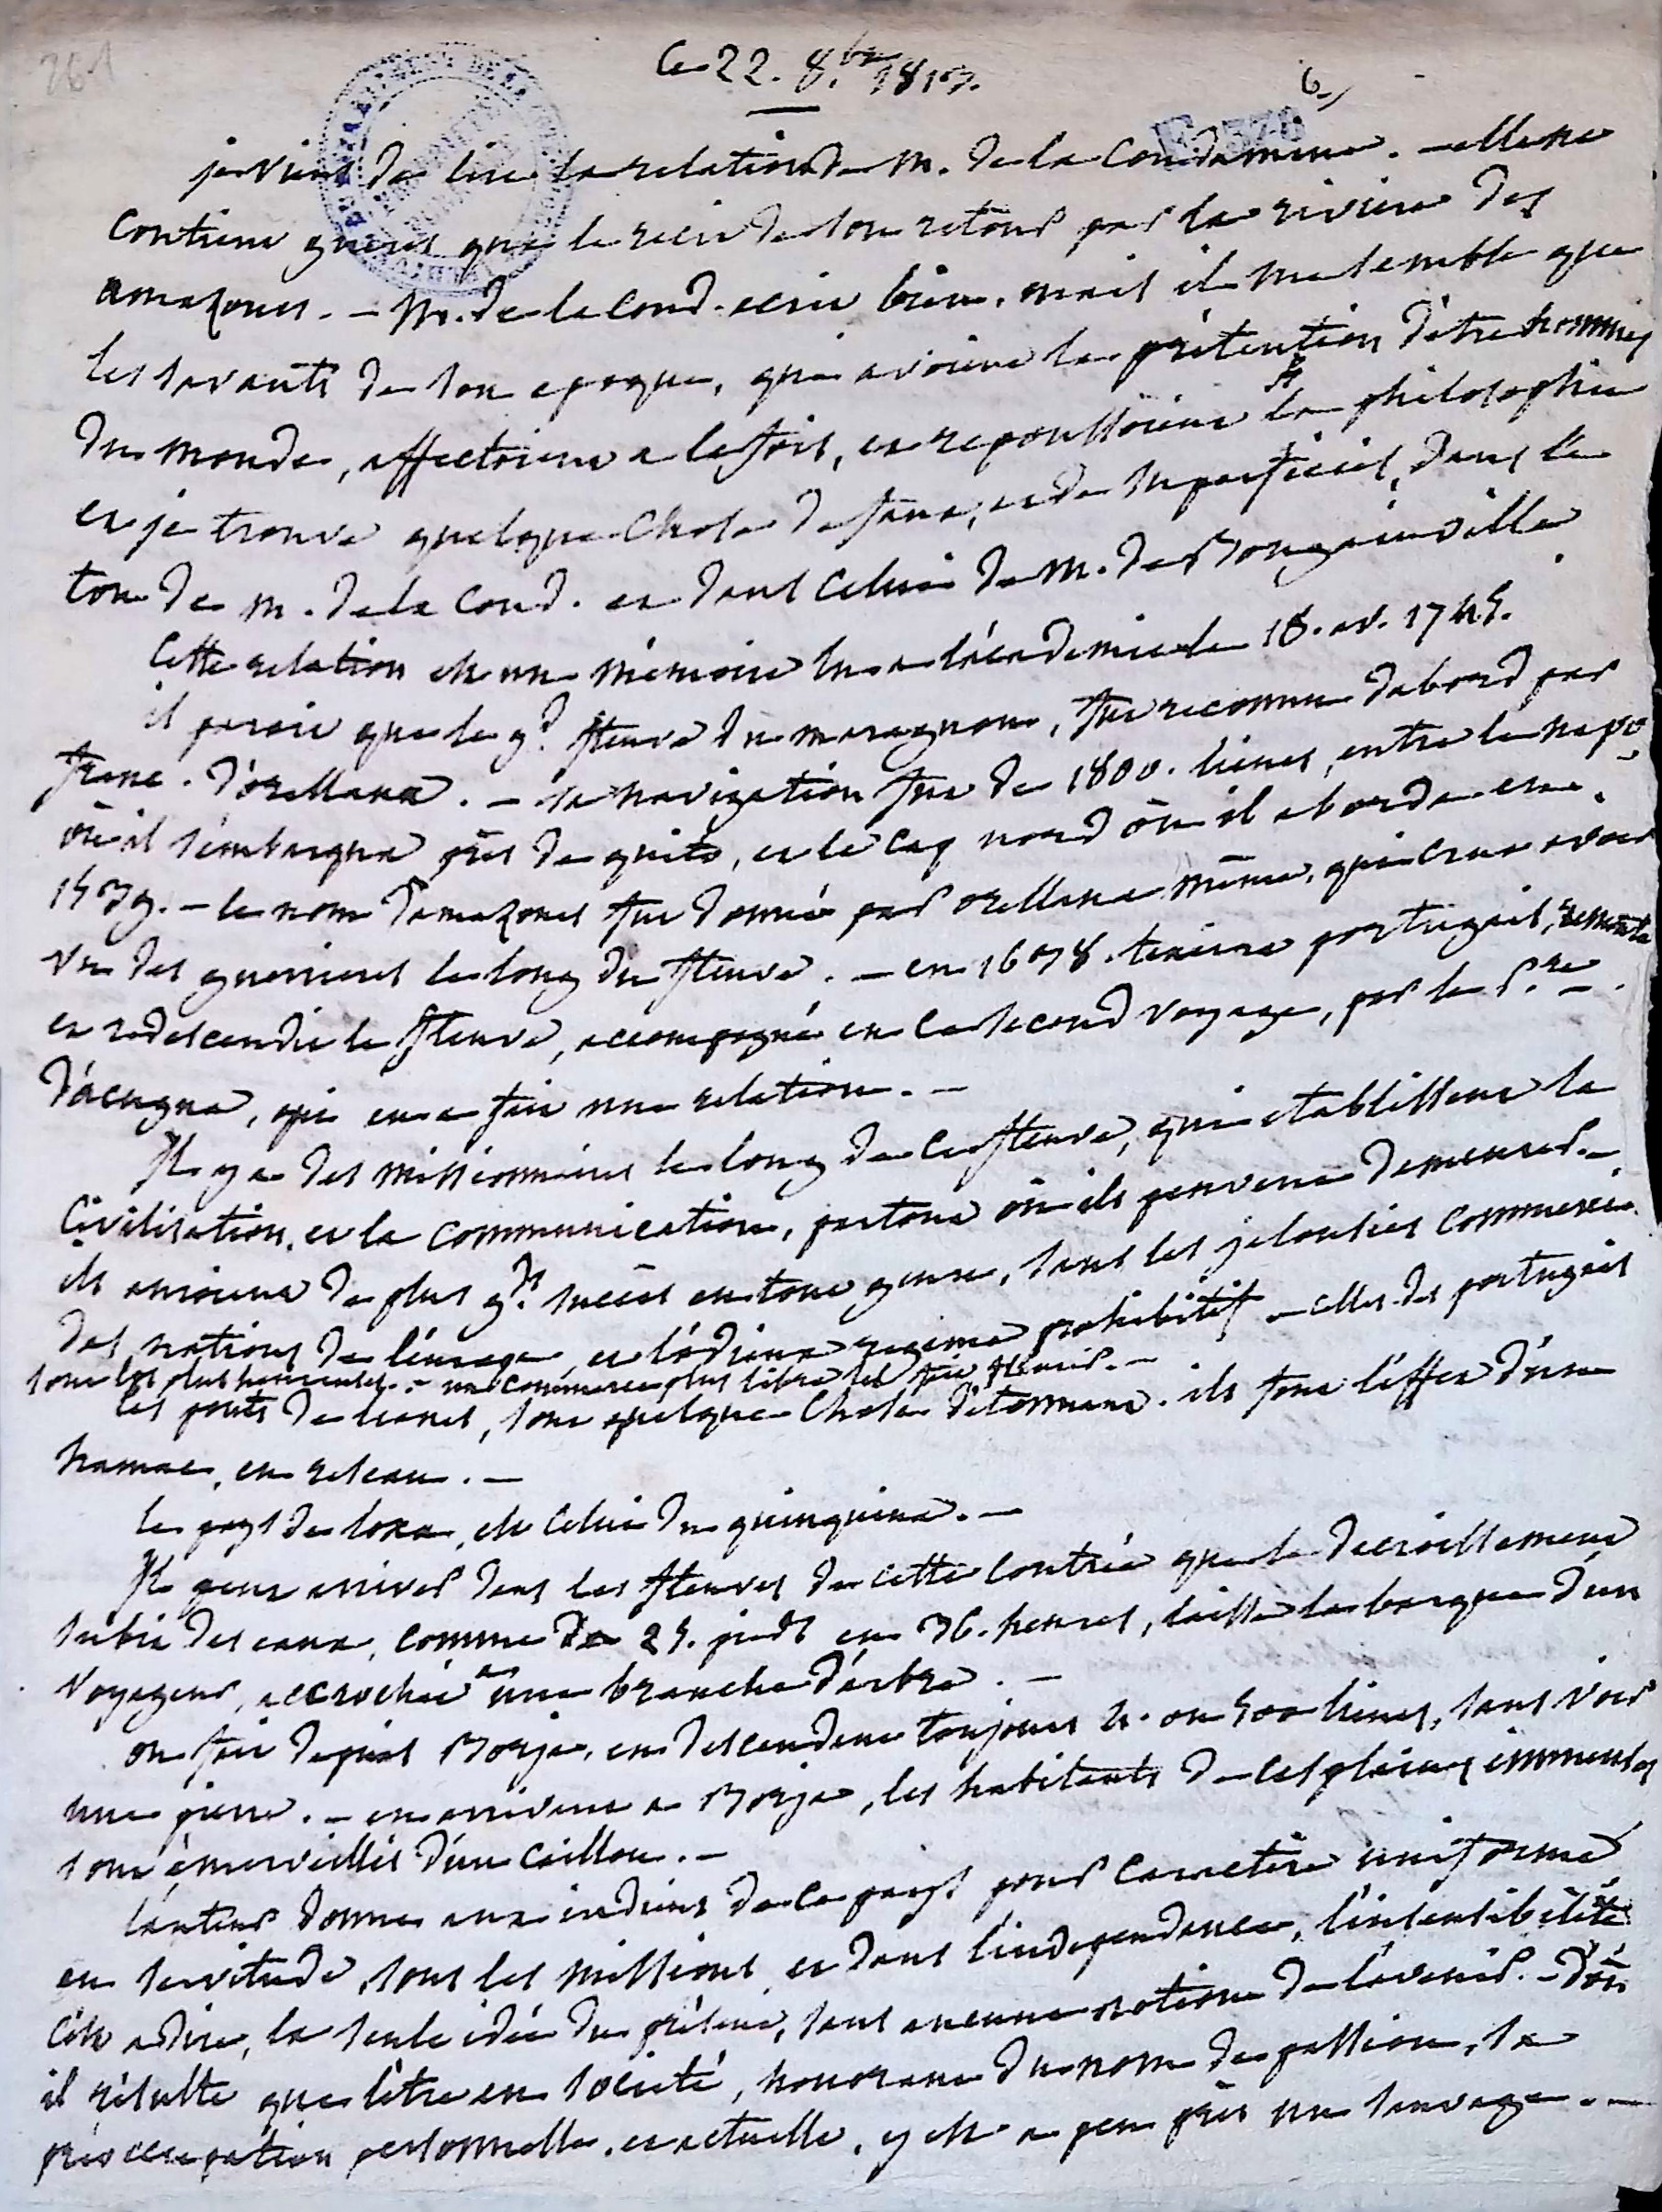 261
Ce 22. 8.bre 1817.
6
je viens de lire la relation de M. de la Condamine. - elle ne
contient guères que le récit de son retour par la rivière des
amazones. - M. de la Cond. écrit bien, mais il me semble que
les savants de son epoque, qui avoient la prétention d'être hommes
du monde, affectoient a la fois, et repoussoient la philosophie
et je trouve quelque chose de faux, et de superficiel, dans le
ton de M. de la Cond. et dans celui de M. de Bougainville.
Cette relation est un mémoire lu a l'académie le 28. av. 1745.
il paroit que le gd. fleuve du maragnon, fut reconnu d'abord par
franc. d'orellana. - sa navigation fut de 1800. lieues, entre le napo
où il s'embarqua près de quito, et le cap nord où il aborda en
1539. - le nom d'amazones fut donné par orellana même, qui crut avoir
vu des guerrieres le long du fleuve. - en 1638. texeira portugais, remonta
et redescendit le fleuve, accompagné en ce second voyage, par le P.re
d'acugna, qui en a fait une relation. -
Il y a des missionnaires le long de ce fleuve, qui etablissent la
civilisation, et la communication, partout où ils peuvent demeurer. -
ils auroient de plus gds. succès en tout genre, sans les jalousies commerci.
des nations de l'europe, et l'odieux regime prohibitif - celles des portugais
sont les plus heureuses. - un commerce plus libre les fait fleurir. -
les ponts de lianes, sont quelque chose d'étonnant. ils font l'effet d'un
hamac, en reseau. -
le pays de loxa, est celui du quinquina. -
Il peut arriver dans les fleuves de cette contrée que le decroissement
subit des eaux, comme de 25. pieds en 36. heures, laisse la barque d'un
voyageur, accrochée a une branche d'arbre. -
on fait depuis Borja, en descendant toujours 4. ou 500 lieues, sans voir
une pierre. - en arrivant a Borja, les habitants de ces plaines immenses
sont émerveillés d'un caillou. -
l'auteur donne aux indiens de ce pays pour caractère uniforme
en servitude, sous les missions et dans l'indépendance, l'insensibilité
c'est a dire, la seule idée du présent, sans aucune notion de l'avenir. - d'où
il résulte que l'être en société, honorant du nom de passion, sa
préoccupation personnelle, et actuelle, y est a peu près un sauvage. -